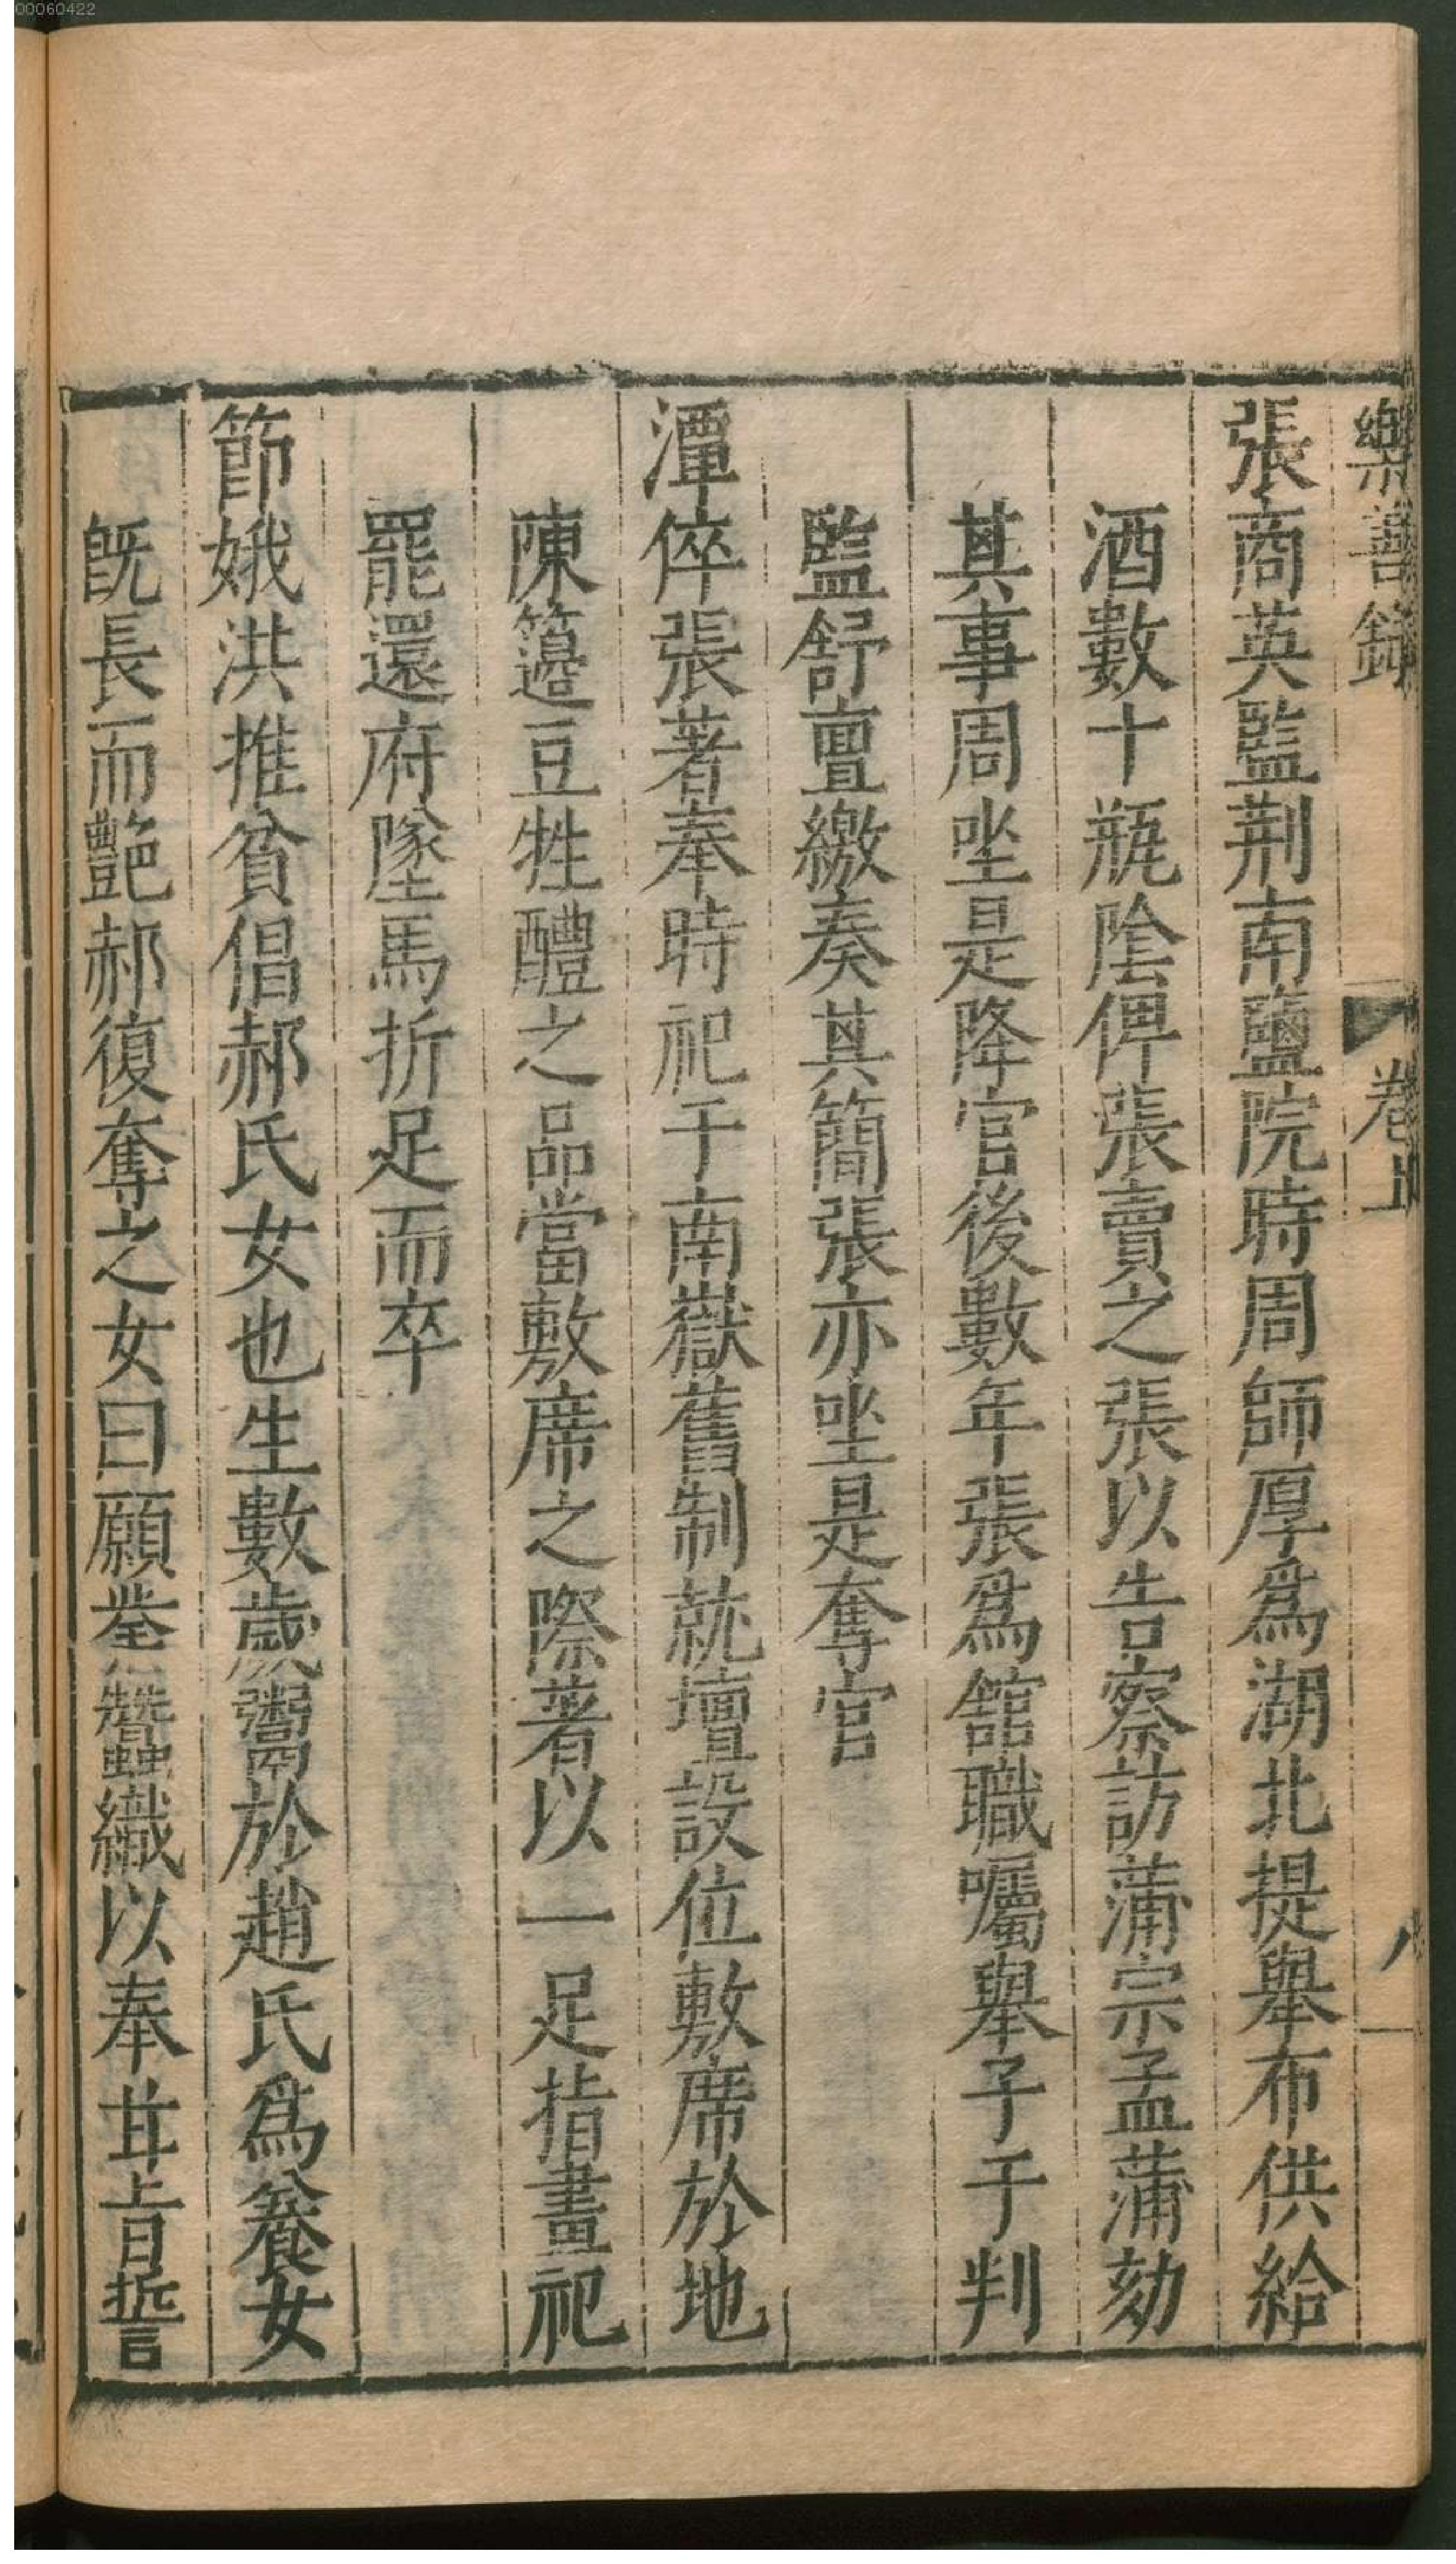 00060422
樂善録 卷上 八
張商英監荆南鹽院時周師厚爲湖北提舉布供給
酒數十瓶陰俾張賣之張以告察訪蒲宗孟蒲劾
其事周坐是降官後數年張爲舘職囑舉子于判
監舒亶繳奏其簡張亦坐是奪官
潭倅張著奉時祀于南嶽舊制就壇設位敷席於地
陳籩豆牲醴之品當敷席之際著以一足指畫祀
罷還府墜馬折足而卒
節娥洪推貧倡郝氏女也生數歲鬻於趙氏爲養女
旣長而艷郝復奪之女曰願塋蠶織以奉甘旨誓